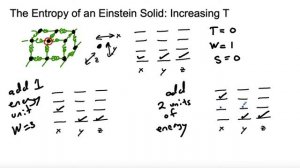 The Entropy of an Einstein Solid: Increasing T
T = 0
W = 1
S = 0
x y z
x y z
add 1
energy
unit
W=3
x y z
add
2 units
of
energy
x y z